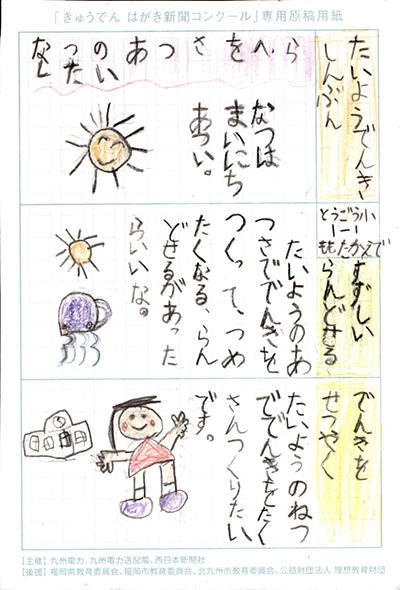 「きゅうでん はがき新聞コンクール」専用原稿用紙
たいようでんき
しんぶん
とうごう小
1ー1
なつのあつさをへら
したい
なつは
まいにち
あつい。
すずしい
らんどせる
たいようのあ
つさででんきを
つくって、つめ
たくなる、らん
どせるがあった
らいいな。
でんきを
せつやく
たいようのねつ
ででんきをたく
さんつくりたい
です。
【主催】九州電力、九州電力送配電、西日本新聞社
【後援】福岡県教育委員会、福岡市教育委員会、北九州市教育委員会、公益財団法人 理想教育財団